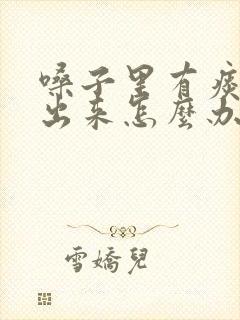 嗓子里有痰
出来怎麼办
雪嬌兒